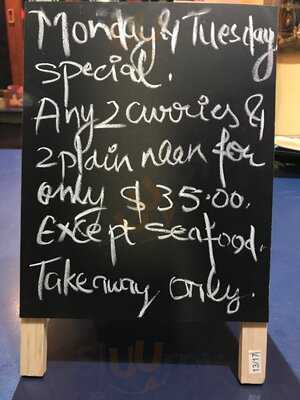 Monday & Tuesday
special.
Any 2 curries &
2 plain naan for
only $35.00.
Except seafood.
Takeaway only.
13/17